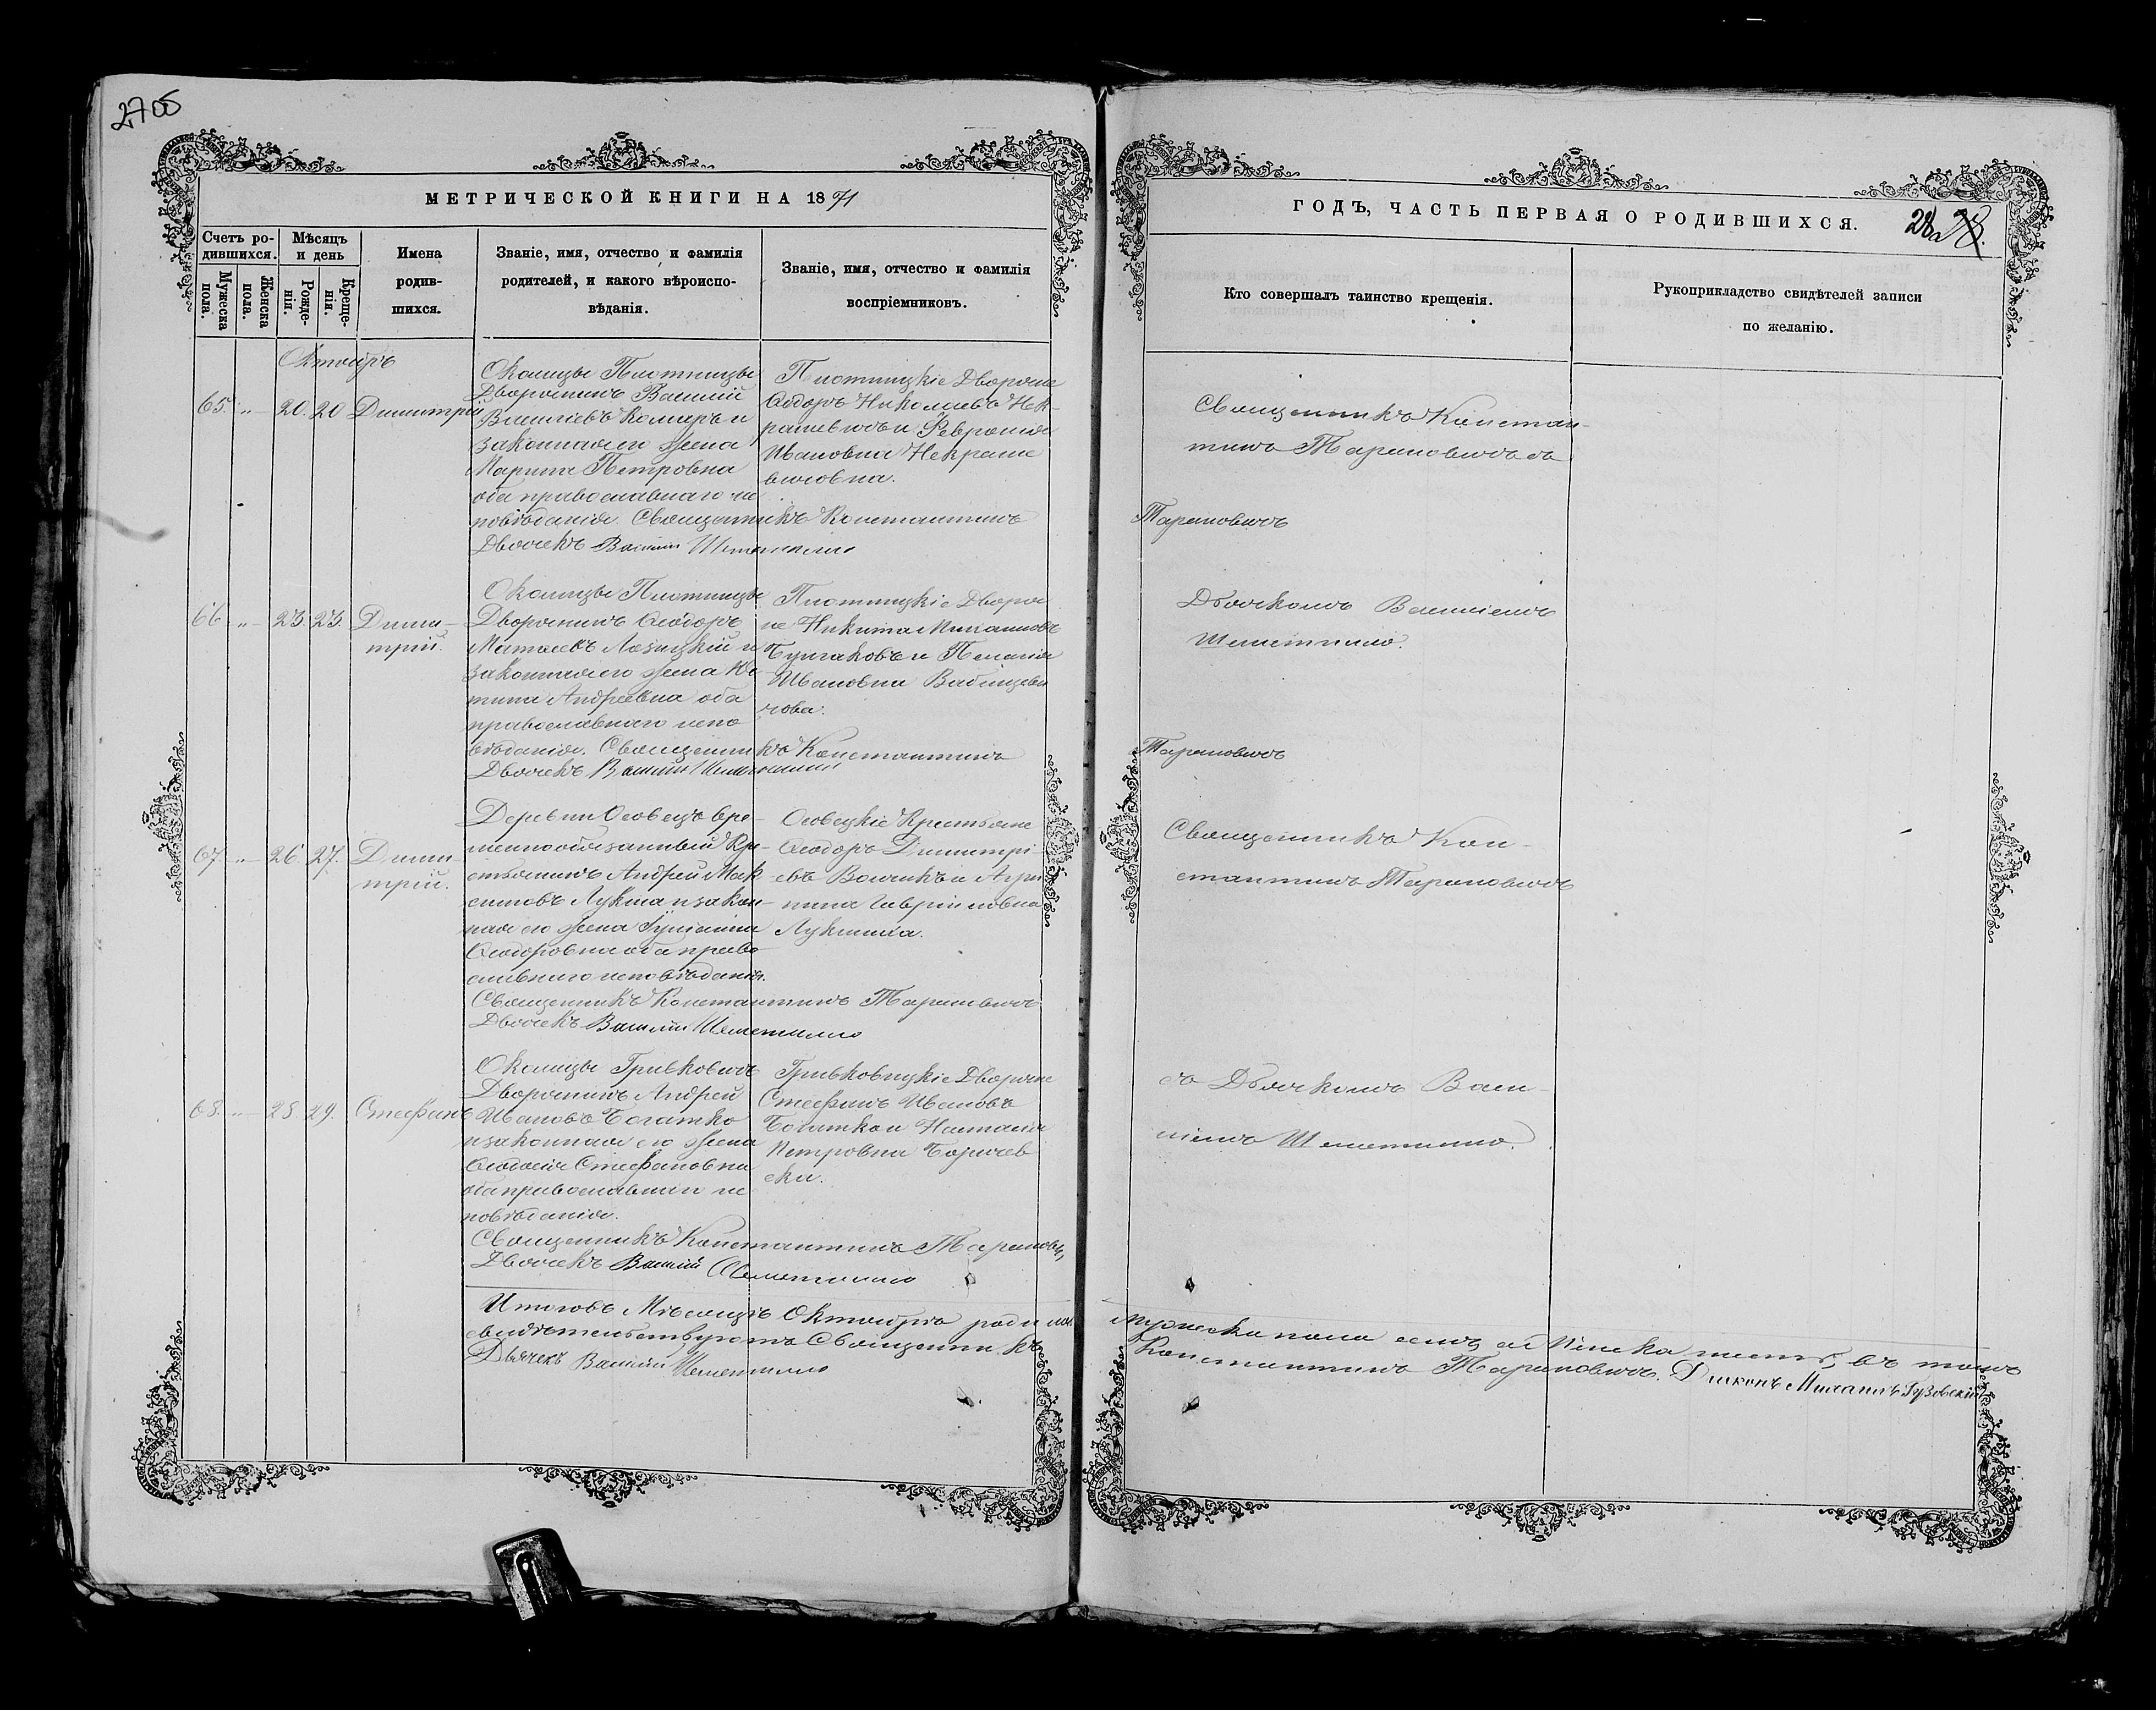 2705
МЕТРИЧЕСКОЙ КНИГИ НА 1871
Счетъ ро-
дившихся.
Мужеска
пола.
Женска
пола.
Мѣсяцъ
и день
Рожде-
нія.
Креще-
нія.
Имена
родив-
шихся.
Званіе, имя, отчество, и фамилія
родителей, и какого вѣроиспо-
вѣданія.
Званіе, имя, отчество и фамилія
воспріемниковъ.
Октябрь
65. „ 20. 20 Димитрій
Околицы Плотницы
Дворянинъ Василій
Васильевъ Комаръ и
законная его жена
Марина Петровна
оба православнаго ис
повѣданія. Священникъ Константинъ
Дьячекъ Василій Шеметилло
Плотницкіе Дворяне
Ѳеодоръ Николаевъ Нек-
рашевичъ и Февронія
Ивановна Некраше
вичовна.
66. „ 23. 23. Дими-
трій.
Околицы Плотницы
Дворянинъ Ѳеодоръ
Матѳеевъ Лозицкій и
законная его жена Юс
тина Андреевна оба
православнаго испо
вѣданія. Священникъ Константинъ
Дьячекъ Василій Шеметилло
Плотницкіе Дворя
не Никита Михаиловъ
Булгаковъ и Пелагія
Ивановна
67. „ 26. 27. Дими-
трій.
Деревни Осовецъ вре-
меннообязанный Кре-
стьянинъ Андрей Мак
симовъ Лукша и закон-
ная его жена Іуліанна
Ѳеодоровна оба право
славнаго исповѣданія.
Священникъ Константинъ Тарановичъ
Дьячекъ Василій Шеметилло
Осовецкіе Крестьяне
Ѳеодоръ Димитрі-
евъ Волчикъ и Агри
пина Гавріиловна
68. „ 28 29. Стефанъ
Околицы Гривковичъ
Дворянинъ Андрей
Ивановъ Богатко
и законная его жена
Ѳеодосія Стефановна
оба православнаго ис
повѣданія.
Священникъ Константинъ Таранович
Дьячекъ Василій Шеметилло
Гривковицкіе Дворяне
Стефанъ Ивановъ
Богатко и Наталія
Петровна
Итого въ Мѣсяцѣ Октябрѣ
свидѣтельствуютъ Священникъ
Дьячекъ Василій Шеметилло
ГОДЪ, ЧАСТЬ ПЕРВАЯ О РОДИВШИХСЯ.
28
Кто совершалъ таинство крещенія.
Рукоприкладство свидѣтелей записи
по желанію.
Священникъ Констан-
тинъ Тарановичъ съ
Тарановичъ
Дьячкомъ Василіемъ
Шеметилло.
Тарановичъ
Священникъ Кон-
стантинъ Тарановичъ
съ Дьячкомъ Васи-
ліемъ Шеметилло.
мужеска пола семь, въ томъ
Константинъ Тарановичъ. Діаконъ Михаилъ